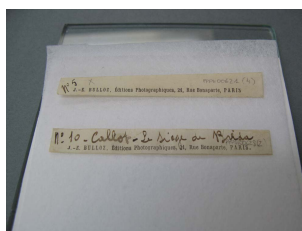 N° 4
J.-E. BULLOZ, Éditions Photographiques, 21, Rue Bonaparte, PARIS
N° 10 - Callot - Le Siège de Bréda
J.-E. BULLOZ, Éditions Photographiques, 21, Rue Bonaparte, PARIS